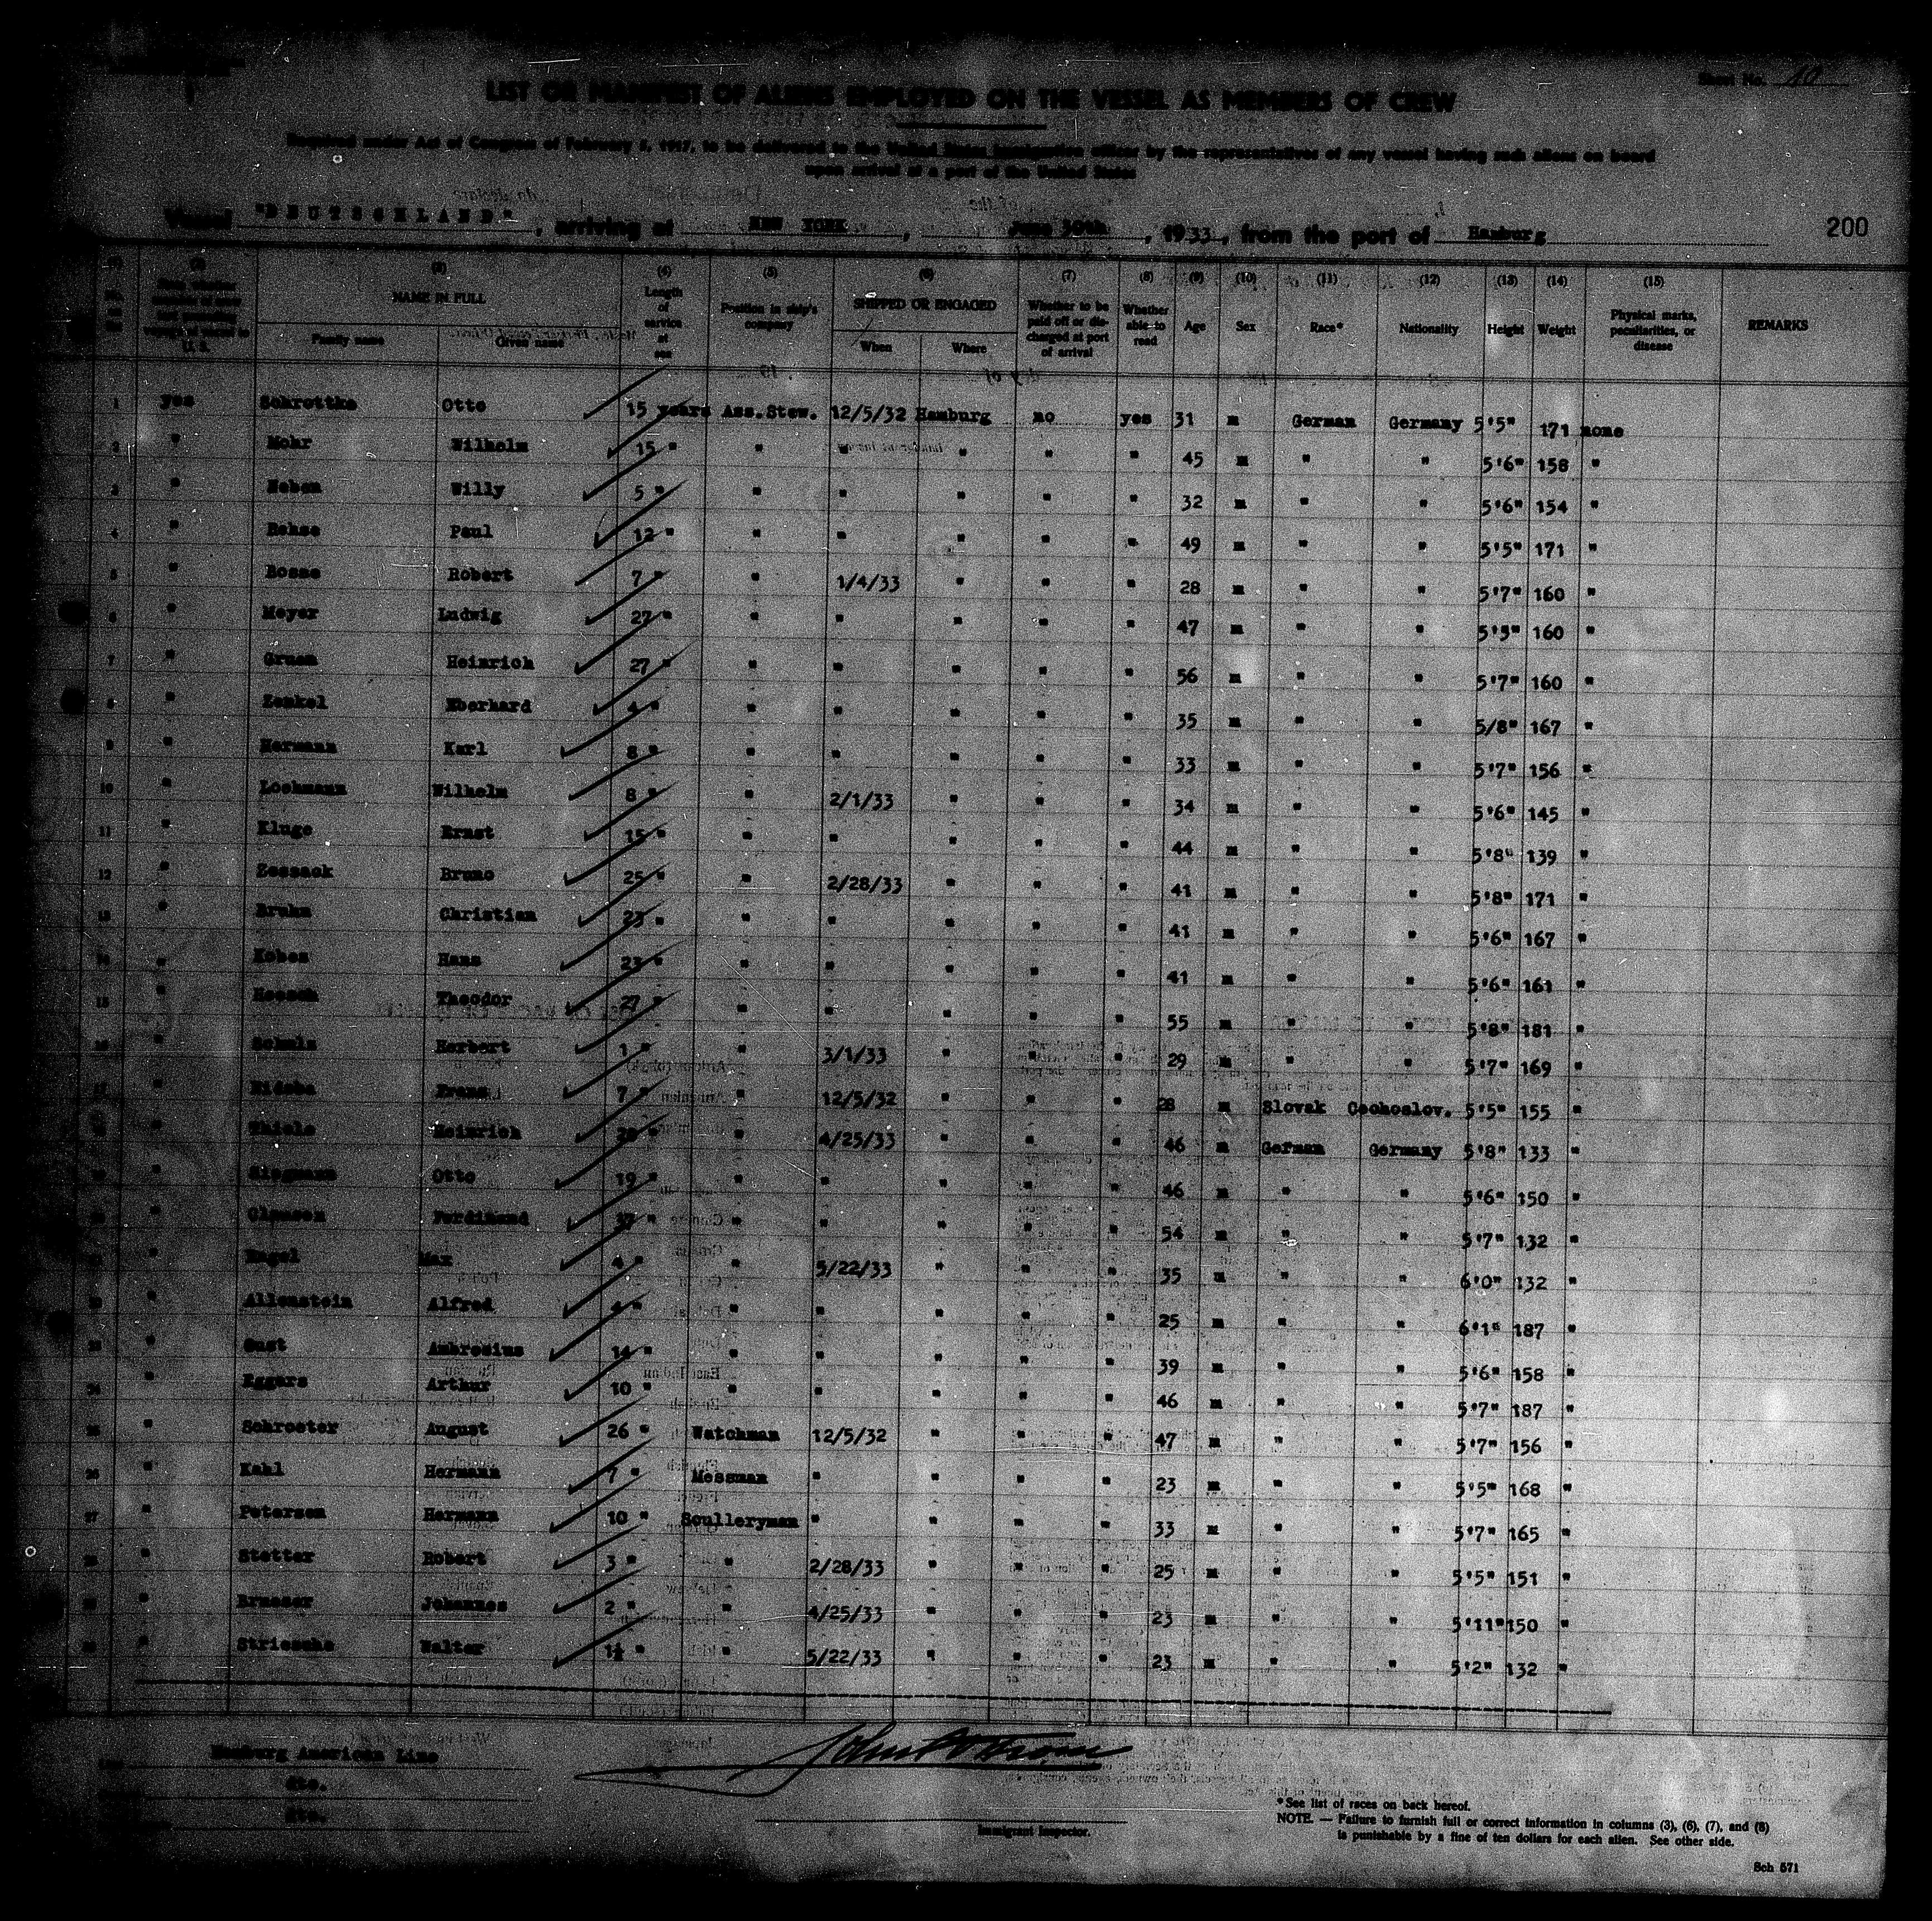 Sheet No. 10
LIST OR MANIFEST OF ALIENS EMPLOYED ON THE VESSEL AS MEMBERS OF CREW
Required under Act of Congress of February 5, 1917, to be delivered to the United States Immigration officer by the representatives of any vessel having such aliens on board
upon arrival at a port of the United States
Vessel "DEUTSCHLAND", arriving at NEW YORK, June 30th, 1933, from the port of Hamburg
200
(3) (4) (5) (6) (7) (8) (9) (10) (11) (12) (13) (14) (15)
NAME IN FULL Family name Given name Length of service at sea Position in ship's company SHIPPED OR ENGAGED When Where Whether to be paid off or discharged at port of arrival Whether able to read Age Sex Race* Nationality Height Weight Physical marks, peculiarities, or disease REMARKS
1 yes Schrottke Otto 15 years Ass.Stew. 12/5/32 Hamburg no yes 31 m German Germany 5'5" 171 none
2 " Mohr Wilhelm 15 " " " " " " 45 m " " 5'6" 158 "
3 " Heben Willy 5 " " " " " " 32 m " " 5'6" 154 "
4 " Rehse Paul 12 " " " " " " 49 m " " 5'5" 171 "
5 " Bosse Robert 7 " " 1/4/33 " " " 28 m " " 5'7" 160 "
6 " Meyer Ludwig 27 " " " " " " 47 m " " 5'5" 160 "
7 " Gruen Heinrich 27 " " " " " " 56 m " " 5'7" 160 "
8 " Zenkel Eberhard 4 " " " " " " 35 m " " 5/8" 167 "
9 " Hermann Karl 8 " " " " " " 33 m " " 5'7" 156 "
10 " Lochmann Wilhelm 8 " " 2/1/33 " " " 34 m " " 5'6" 145 "
11 " Kluge Ernst 15 " " " " " " 44 m " " 5'8" 139 "
12 " Zossack Bruno 25 " " 2/28/33 " " " 41 m " " 5'8" 171 "
13 " Bruhn Christian 23 " " " " " " 41 m " " 5'6" 167 "
14 " Kobes Hans 23 " " " " " " 41 m " " 5'6" 161 "
15 " Hoesch Theodor 27 " " " " " " 55 m " " 5'8" 181 "
16 " Schulz Herbert 1 " " 3/1/33 " " " 29 m " " 5'7" 169 "
17 " Franz 7 " " 12/5/32 " " " 28 m Slovak Cechoslov. 5'5" 155 "
18 " Thiele Heinrich " " 4/25/33 " " " 46 m German Germany 5'8" 133 "
19 " Siegmann Otto 19 " " " " " " 46 m " " 5'6" 150 "
20 " Clausen Ferdinand 37 " " " " " " 54 m " " 5'7" 132 "
21 " Nagel Max 4 " " 5/22/33 " " " 35 m " " 6'0" 132 "
22 " Allenstein Alfred 4 " " " " " " 25 m " " 6'1" 187 "
23 " Gust Ambrosius 14 " " " " " " 39 m " " 5'6" 158 "
24 " Eggers Arthur 10 " " " " " " 46 m " " 5'7" 187 "
25 " Schroeter August 26 " Watchman 12/5/32 " " " 47 m " " 5'7" 156 "
26 " Kahl Hermann 7 " Messman " " " " 23 m " " 5'5" 168 "
27 " Petersen Hermann 10 " Sculleryman " " " " 33 m " " 5'7" 165 "
28 " Stetter Robert 3 " " 2/28/33 " " " 25 m " " 5'5" 151 "
29 " Brueser Johannes 2 " " 4/25/33 " " " 23 m " " 5'11" 150 "
30 " Striesche Walter 1½ " " 5/22/33 " " " 23 m " " 5'2" 132 "
Hamburg American Line
dto.
dto.
Immigrant Inspector.
*See list of races on back hereof.
NOTE. — Failure to furnish full or correct information in columns (3), (6), (7), and (8)
is punishable by a fine of ten dollars for each alien. See other side.
Sch 571